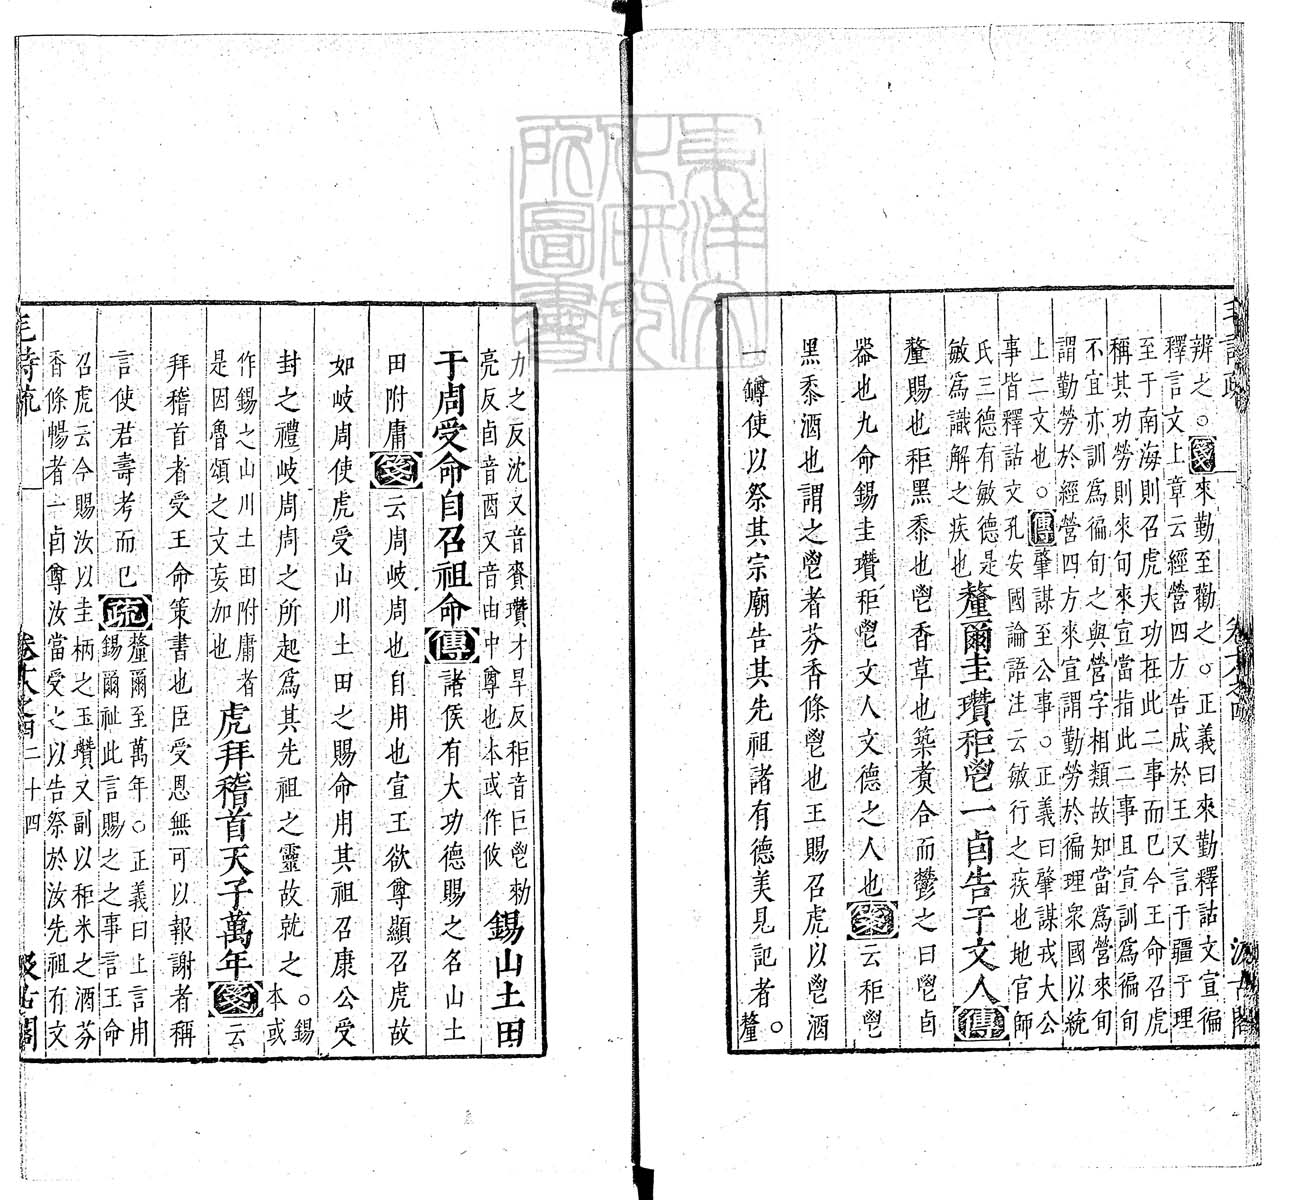 毛詩疏 卷十八之四 汲古閣
辨之。○箋來勤至勸之。○正義曰來勤釋詁文宣徧
釋言文上章云經營四方告成於王又言于疆于理
至于南海則召虎大功在此二事而已今王命召虎
稱其功勞則來旬來宣當指此二事且宣訓為徧旬
不宜亦訓為徧旬之與營字相類故知當為營來旬
謂勤勞於經營四方來宣謂勤勞於徧理衆國以統
上二文也。○傳肇謀至公事。○正義曰肇謀戎大公
事皆釋詁文孔安國論語注云敏行之疾也地官師
氏三德有敏德是
敏為識解之疾也釐爾圭瓚秬鬯一卣告于文人傳
釐賜也秬黑黍也鬯香草也築煑合而鬱之曰鬯卣
器也九命錫圭瓚秬鬯文人文德之人也箋云秬鬯
黑黍酒也謂之鬯者芬香條鬯也王賜召虎以鬯酒
一罇使以祭其宗廟告其先祖諸有德美見記者○釐
力之反沈又音賚瓚才旱反秬音巨鬯勑
亮反卣音酉又音由中尊也本或作攸錫山土田
于周受命自召祖命傳諸侯有大功德賜之名山土
田附庸箋云周岐周也自用也宣王欲尊顯召虎故
如岐周使虎受山川土田之賜命用其祖召康公受
封之禮岐周周之所起為其先祖之靈故就之○錫本或
作錫之山川土田附庸者
是因魯頌之文妄加也虎拜稽首天子萬年箋云
拜稽首者受王命策書也臣受恩無可以報謝者稱
言使君壽考而已疏釐爾至萬年。○正義曰上言用
錫爾祉此言賜之之事言王命
召虎云今賜汝以圭柄之玉瓚又副以秬米之酒芬
香條暢者一卣尊汝當受之以告祭於汝先祖有文
毛詩疏 卷十八之四 二十四 汲古閣
東洋文化研究所圖書